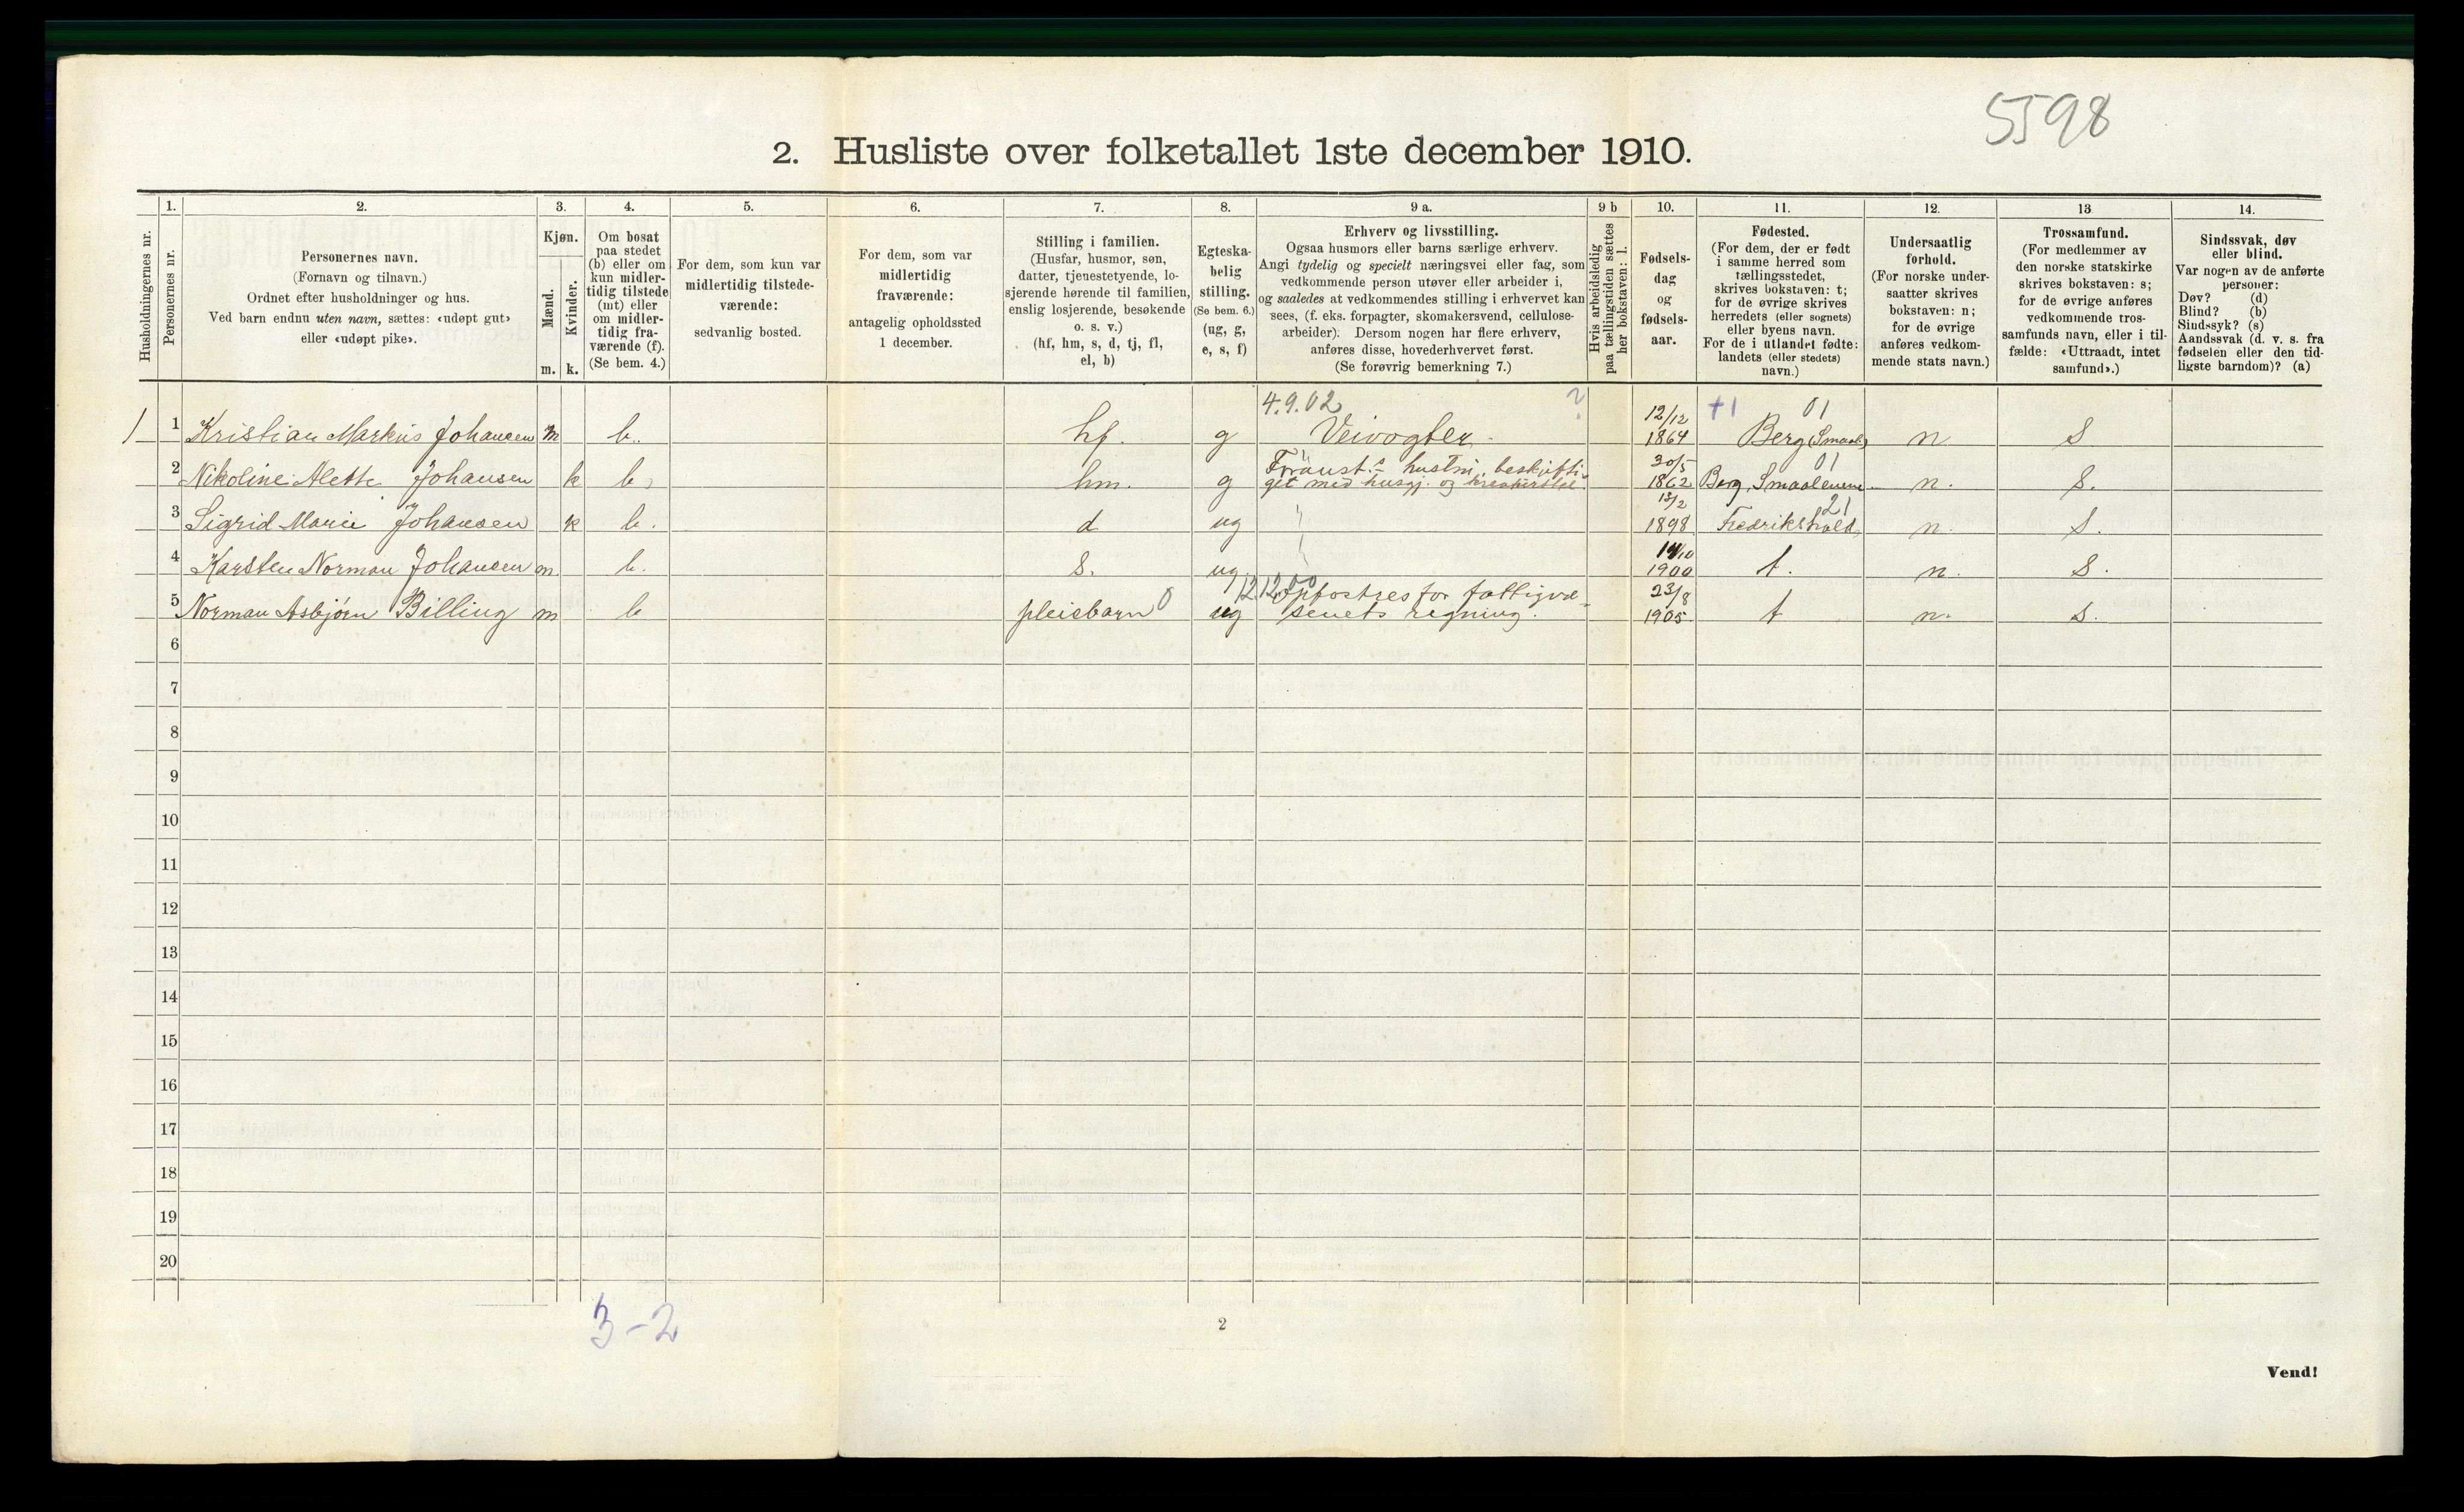 5598
2. Husliste over folketallet 1ste december 1910.
Husholdningernes nr.
1.
Personernes nr.
2.
Personernes navn.
(Fornavn og tilnavn.)
Ordnet efter husholdninger og hus.
Ved barn endnu uten navn, sættes: «udøpt gut»
eller «udøpt pike».
3.
Kjøn.
Mænd.
Kvinder.
m. k.
4.
Om bosat
paa stedet
(b) eller om
kun midler-
tidig tilstede
(mt) eller
om midler-
tidig fra-
værende (f).
(Se bem. 4.)
5.
For dem, som kun var
midlertidig tilstede-
værende:
sedvanlig bosted.
6.
For dem, som var
midlertidig
fraværende:
antagelig opholdssted
1 december.
7.
Stilling i familien.
(Husfar, husmor, søn,
datter, tjenestetyende, lo-
sjerende hørende til familien,
enslig losjerende, besøkende
o. s. v.)
(hf, hm, s, d, tj, fl,
el, b)
8.
Egteska-
belig
stilling.
(Se bem. 6.)
(ug, g,
e, s, f)
9 a.
Erhverv og livsstilling.
Ogsaa husmors eller barns særlige erhverv.
Angi tydelig og specielt næringsvei eller fag, som
vedkommende person utøver eller arbeider i,
og saaledes at vedkommendes stilling i erhvervet kan
sees, (f. eks. forpagter, skomakersvend, cellulose-
arbeider). Dersom nogen har flere erhverv,
anføres disse, hovederhvervet først.
(Se forøvrig bemerkning 7.)
9 b
Hvis arbeidsledig
paa tællingstiden sættes
her bokstaven: l.
10.
Fødsels-
dag
og
fødsels-
aar.
11.
Fødested.
(For dem, der er født
i samme herred som
tællingsstedet,
skrives bokstaven: t;
for de øvrige skrives
herredets (eller sognets)
eller byens navn.
For de i utlandet fødte:
landets (eller stedets)
navn.)
12.
Undersaatlig
forhold.
(For norske under-
saatter skrives
bokstaven: n;
for de øvrige
anføres vedkom-
mende stats navn.)
13
Trossamfund.
(For medlemmer av
den norske statskirke
skrives bokstaven: s;
for de øvrige anføres
vedkommende tros-
samfunds navn, eller i til-
fælde: «Uttraadt, intet
samfund».)
14.
Sindssvak, døv
eller blind.
Var nogen av de anførte
personer:
Døv? (d)
Blind? (b)
Sindssyk? (s)
Aandssvak (d. v. s. fra
fødselen eller den tid-
ligste barndom)? (a)
4.9.02 ? 12/12 +1 01
1 1 Kristian Markus Johansen m b. hf. g Veivogter. 1864 Berg (Smaal) n s
30/5 01
2 Nikoline Alette Johansen k b, hm. g hustru, beskjæfti-
get med husgj. og 1862 Berg, Smaalenene n. s.
13/2 21
3 Sigrid Marie Johansen k b. d ug 1898 Fredrikshald, n. s.
10
4 Karsten Norman Johansen m b. s. ug. 1900 t. n. s.
0 12.12.00 opfostres for fattigvæ- 23/8
5 Norman Asbjørn Billing m b pleiebarn ug senets regning. 1905 t n. s.
6
7
8
9
10
11
12
13
14
15
16
17
18
19
20
3-2
2
Vend!